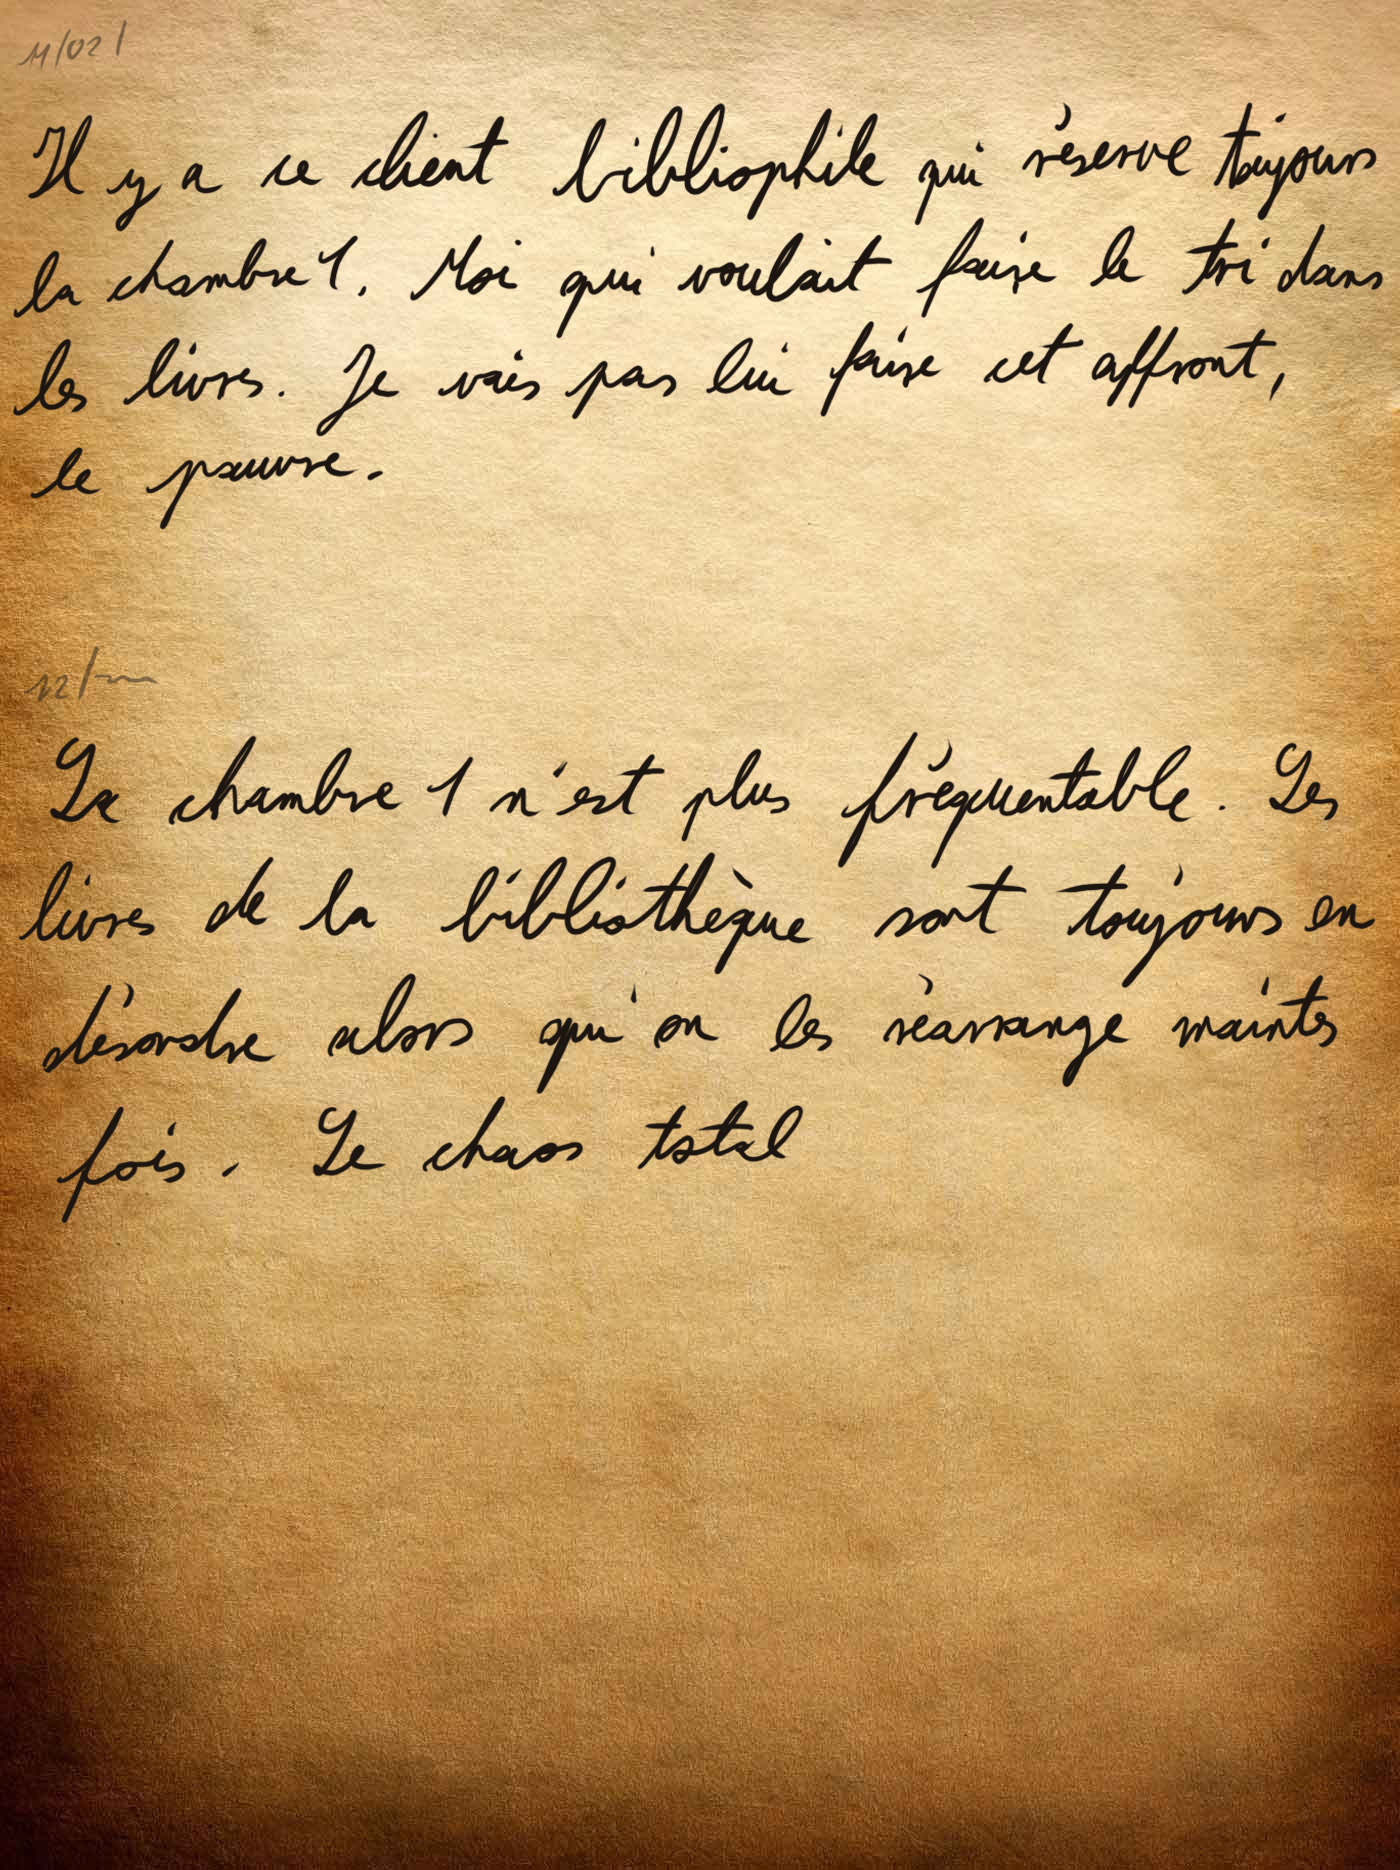 11/02/
Il y a ce client bibliophile qui réserve toujours
la chambre 1. Moi qui voulait faire le tri dans
les livres. Je vais pas lui faire cet affront,
le pauvre.
12/
La chambre 1 n'est plus fréquentable. Les
livres de la bibliothèque sont toujours en
désordre alors qu'on les réarrange maintes
fois. Le chaos total